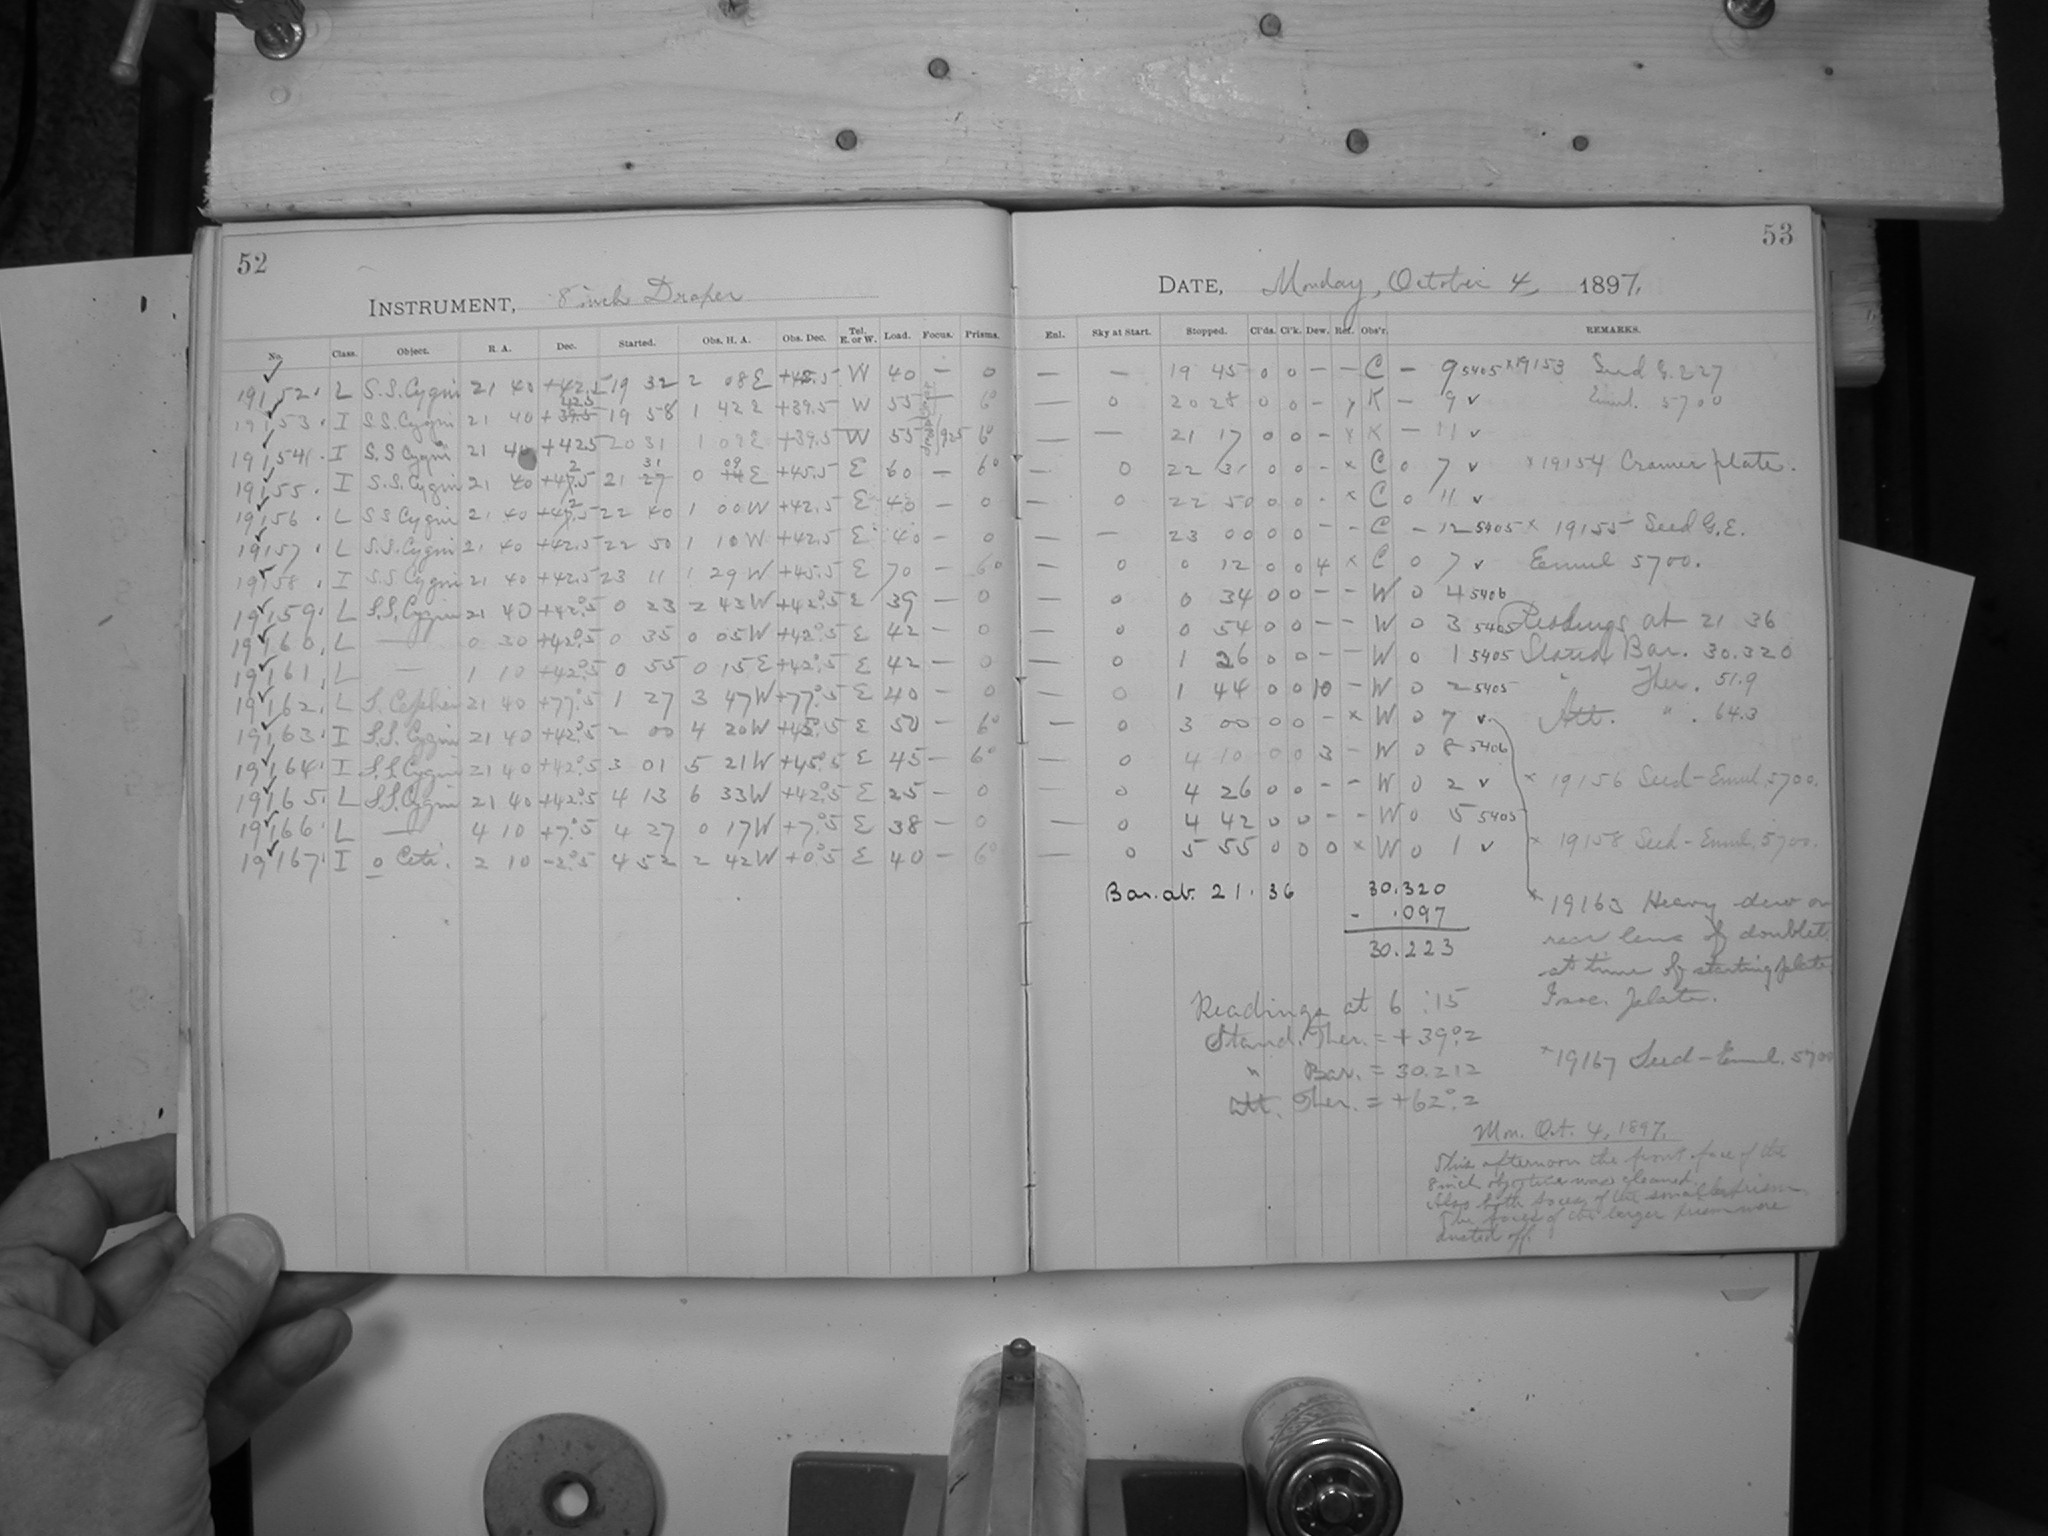 52
INSTRUMENT, 8 inch Draper
No. Class. Object. R. A. Dec. Started. Obs. H. A. Obs. Dec. Tel. E. or W. Load. Focus. Prisms.
19152. L S.S. Cygni 21 40 +42.5 19 32 2 08 E W 40 — 0
19153. I S.S. Cygni 21 40 +39.5 42.5 19 58 1 42 E +39.5 W 55 — 6°
19154. I S.S. Cygni 21 40 +42.5 20 31 1 09 E +39.5 W 55 1925 6°
19155. I S.S. Cygni 21 40 21 27 31 0 09 E +45.5 E 60 — 6°
19156. L S S Cygni 21 40 22 40 1 00 W +42.5 E 40 — 0
19157. L S.S. Cygni 21 40 +42.5 22 50 1 10 W +42.5 E 40 — 0
19158. I S.S Cygni 21 40 +42.5 23 11 1 29 W +45.5 E 70 — 6°
19159. L S.S. Cygni 21 40 +42°.5 0 23 2 43 W +42°.5 E 39 — 0
19160. L — 0 30 +42°.5 0 35 0 05 W +42°.5 E 42 — 0
19161. L — 1 10 +42°.5 0 55 0 15 E +42°.5 E 42 — 0
19162. L S. Cephei 21 40 +77°.5 1 27 3 47 W +77°.5 E 40 — 0
19163. I S.S. Cygni 21 40 +42°.5 2 00 4 20 W +45°.5 E 50 — 6°
19164. I S.S Cygni 21 40 +42°.5 3 01 5 21 W +45°.5 E 45 — 6°
19165. L S.S. Cygni 21 40 +42°.5 4 13 6 33 W +42°.5 E 25 — 0
19166. L — 4 10 +7°.5 4 27 0 17 W +7°.5 E 38 — 0
19167. I o Ceti. 2 10 -2°.5 4 52 2 42 W +0°.5 E 40 — 6°
53
DATE, Monday, October 4, 1897.
Enl. Sky at Start. Stopped. Cl'ds. Cl'k. Dew. Ref. Obs'r. REMARKS.
— — 19 45 0 0 — — C — 9 5405 x19153 Seed G. 227
— 0 20 28 0 0 - x K — 9 v Emul. 5700
— — 21 17 0 0 - x K — 11 v
— 0 22 31 0 0 - x C 0 7 v x19154 Cramer plate.
— 0 22 50 0 0 - x C 0 11 v
— — 23 00 0 0 - - C — 12 5405 x 19155 Seed G.E.
— 0 0 12 0 0 4 x C 0 7 v Emul 5700.
— 0 0 34 0 0 - - W 0 4 5406
— 0 0 54 0 0 - - W 0 3 5405 Readings at 21 36
— 0 1 26 0 0 - - W 0 1 5405 Stand Bar. 30.320
— 0 1 44 0 0 10 - W 0 2 5405 " Ther. 51.9
— 0 3 00 0 0 - x W 0 7 v Att. " . 64.3
— 0 4 10 0 0 3 - W 0 8 5406
— 0 4 26 0 0 - - W 0 2 v x 19156 Seed - Emul. 5700.
— 0 4 42 0 0 - - W 0 5 5405
— 0 5 55 0 0 0 x W 0 1 v x 19158 Seed - Emul. 5700.
Bar. at. 21. 36 30.320
- .097
30.223
x 19163 Heavy dew on
rear lens of doublet
at time of starting plate
plate.
Readings at 6 : 15
Stand. Ther. = + 39°.2
" Bar. = 30.212
Att. Ther. = + 62°.2
x 19167 Seed - Emul. 5700
Mon. Oct. 4, 1897.
This afternoon the front face of the
8 inch objective was cleaned.
Also both faces of the smallest prism.
The faces of the larger prism were
dusted off.